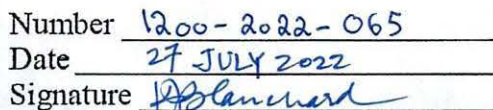 Number 1200-2022-065
Date 27 JULY 2022
Signature DBlanchard